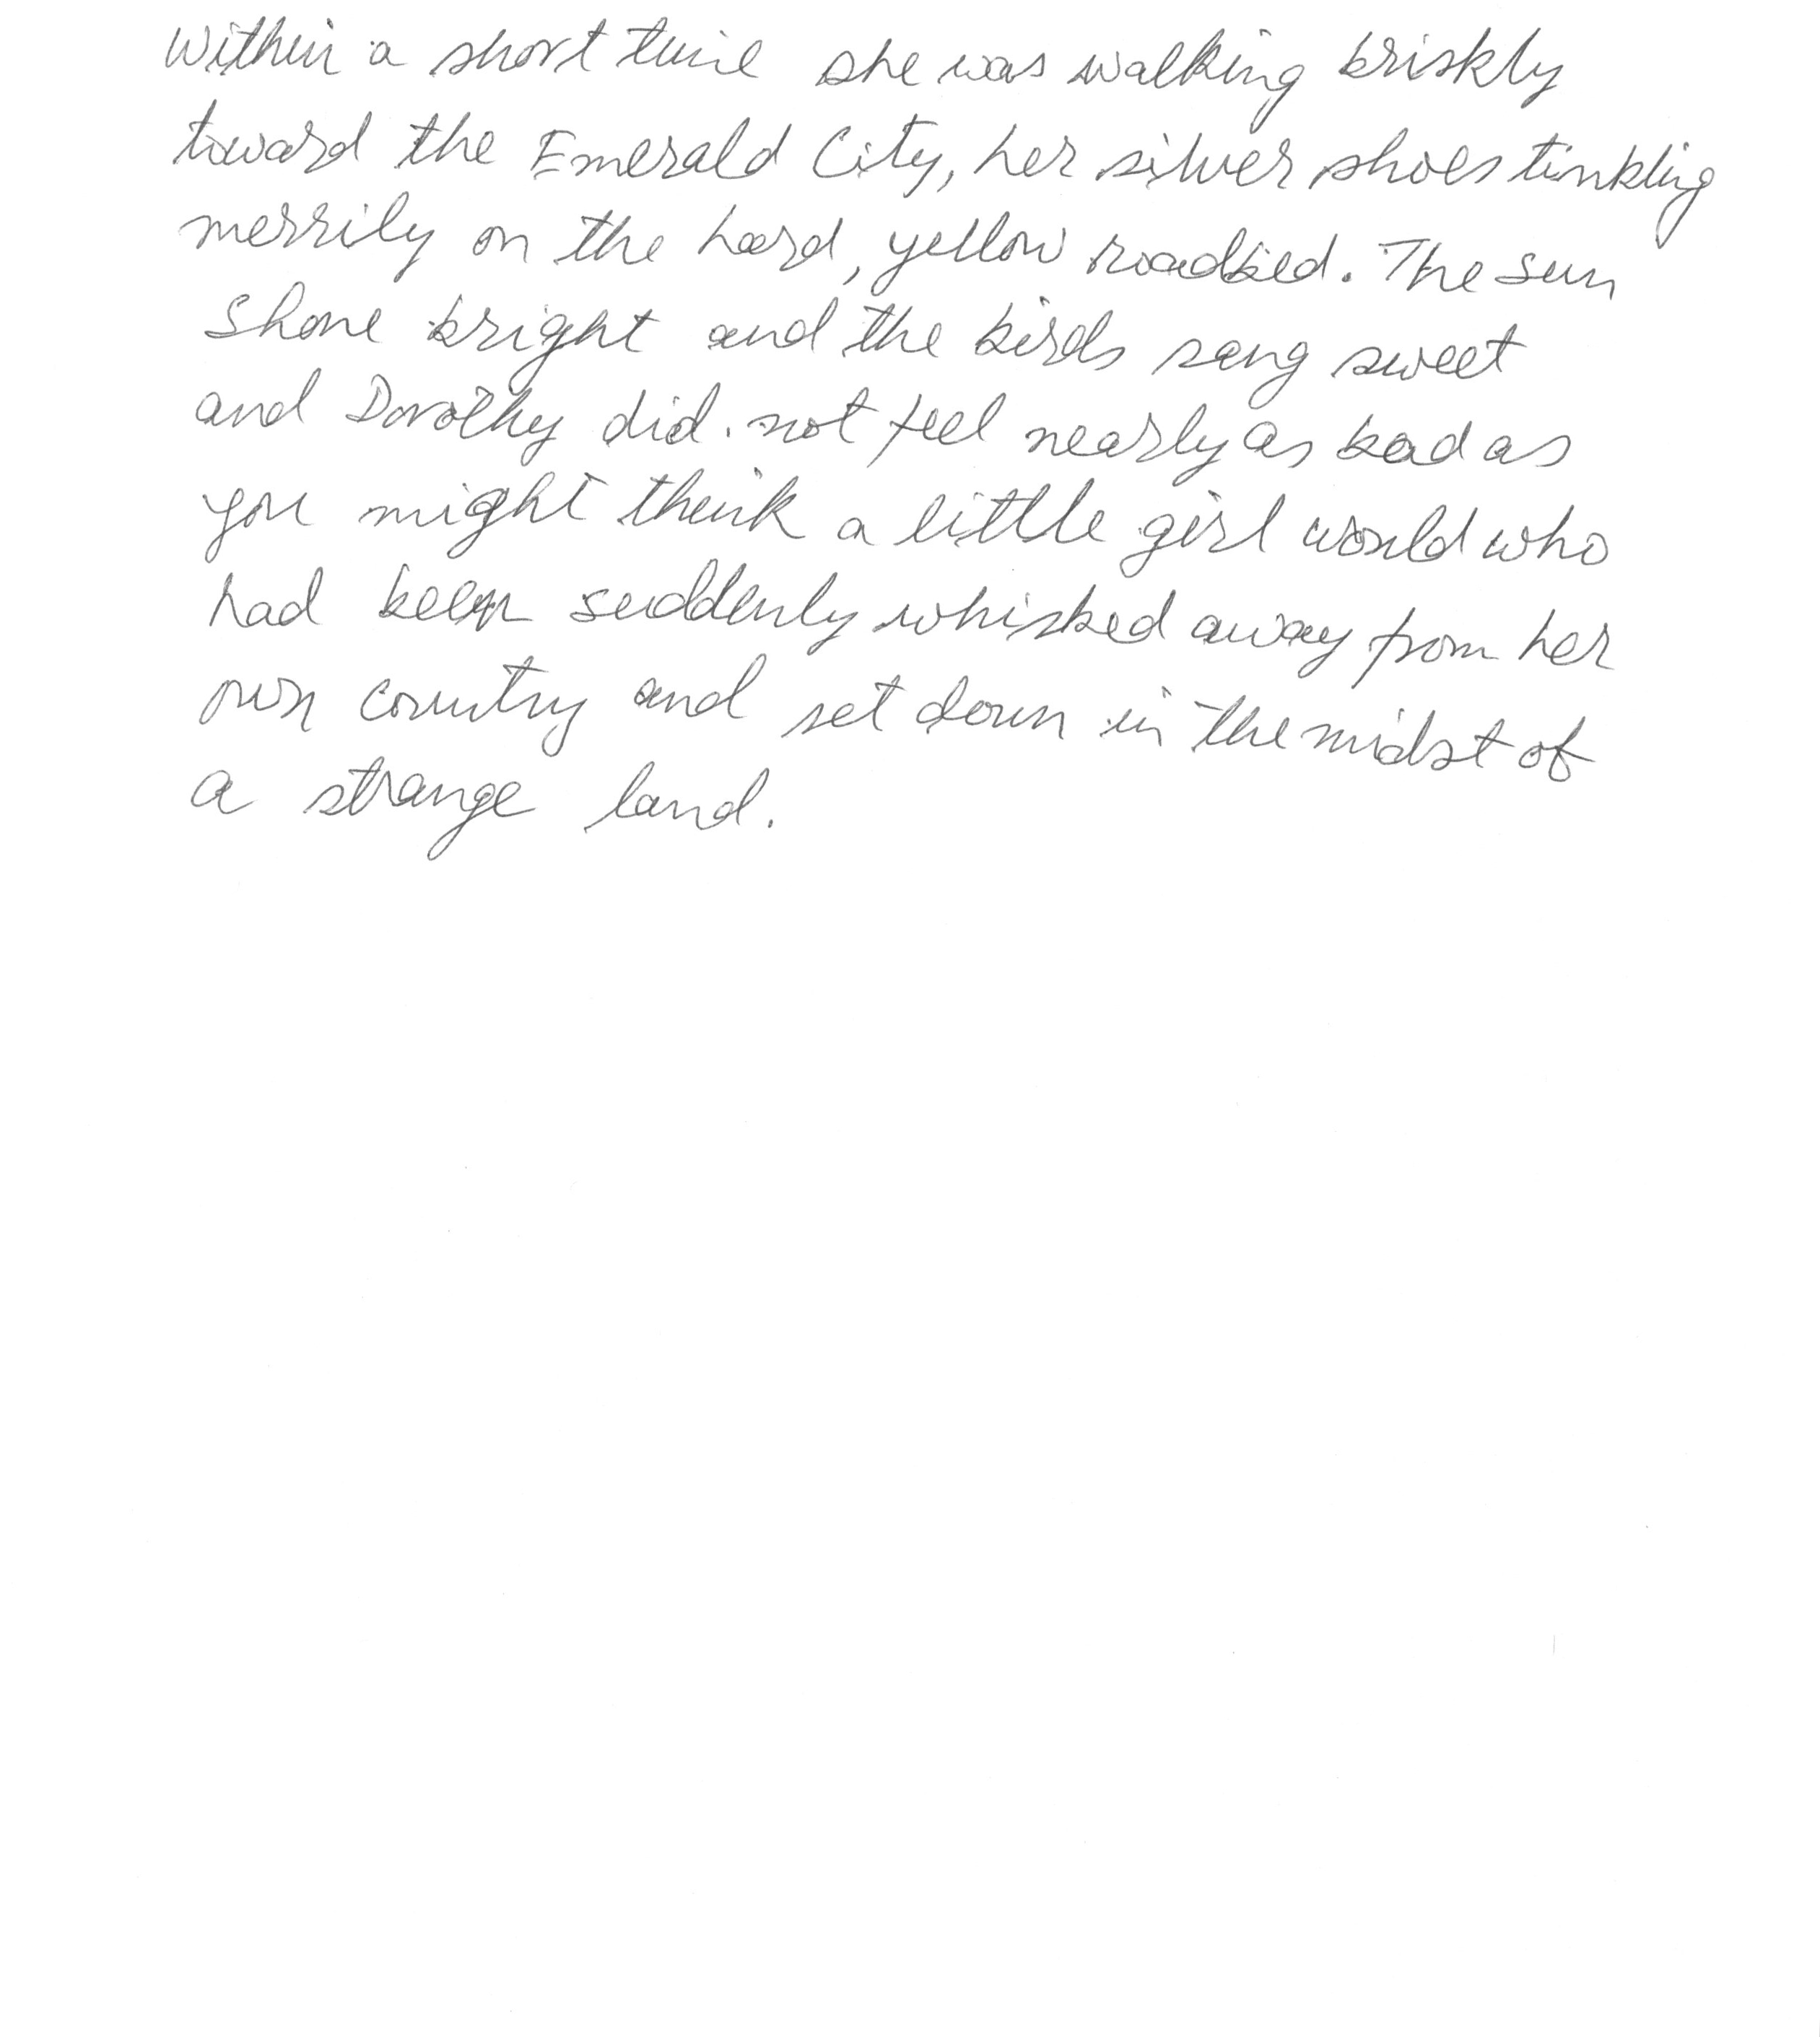 Within a short time she was walking briskly
toward the Emerald City, her silver shoes tinkling
merrily on the hard, yellow roadbed. The sun
shone bright and the birds sang sweet
and Dorothy did not feel nearly as bad as
you might think a little girl would who
had been suddenly whisked away from her
own country and set down in the midst of
a strange land.